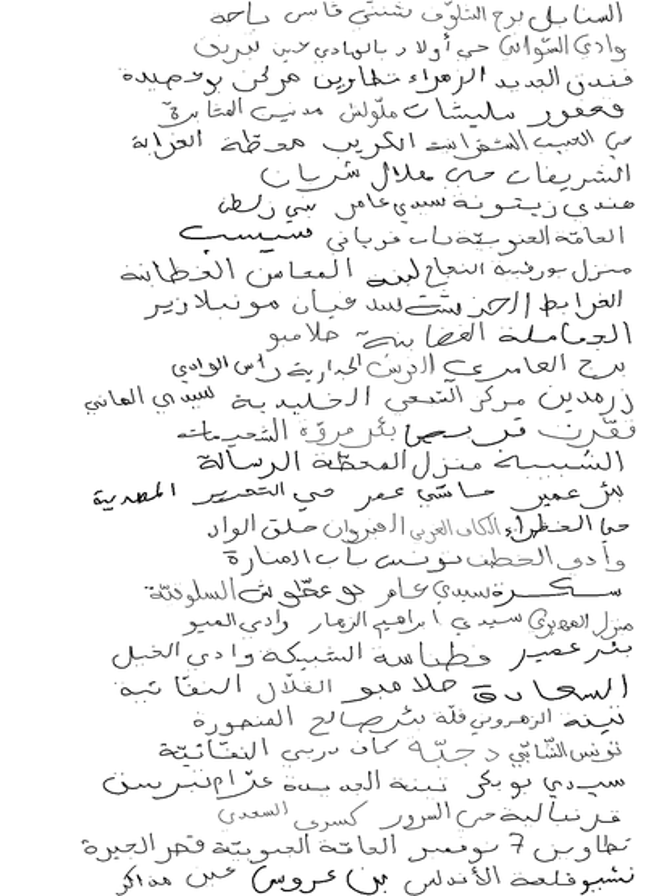 السنابل برج التلوّف شنني قابس باجة
وادي السواني حي أولاد بالهادي عين شريف
فندق الجديد الزهراء تطاوين مركز بوحصيدة
قعفور سليشات ملولش مدنين المثابرة
حي الحبيب الشقرانية الكريب محطة الغرابة
الشريفات حي هلال شربان
هندي زيتونة سيدي عامر بني زلطن
العامّة الجنوبيّة باب قرباني سبيب
منزل بورقيبة النجاح لبنة المغاسل القطانة
الغرابطة سد عيان مونبلازير
الجماملة الغضابنة صلامبو
برج العامري الجدارية رأس الوادي
زرمدين مركز الشعبي الخليدية سيدي الهاني
فقرت بئر مروّة الشحيمات
الشبيبة منزل المحطة الرسالة
بئر عمير حاشي عمر حي التحرير المصدرية
حي الخضراء الكاف الغربي القيروان حلق الواد
وادي الخطف تونس باب المنارة
سكرة سيدي عامر دو عطوش السلوقيّة
منزل المهيري سيدي ابراهيم الزهار وادي
بئر عمير قطناسة الشبيكة وادي الخيل
السعادة صلامبو القلال النفاتية
نبينة الزهروني قلة بئر صالح المنصورة
تونس الشابي دجبّة كاف دربي النفّاتيّة
سيدي بوبكر نبينة الجديدة عزّام نبرسق
قرنبالية حي السرور كسرى السعيدي
تطاوين 7 نوفمبر العامّة الجنوبيّة قصر الجيرة
نشيو قلعة الأندلس بن عروس عين مذاكر